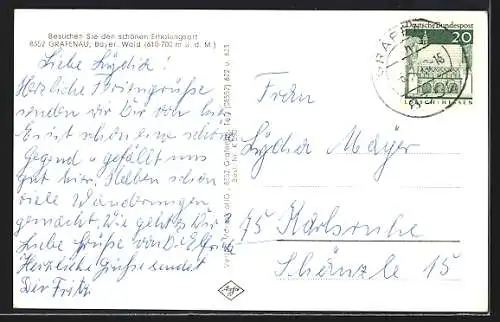 Besuchen Sie den schönen Erholungsort
8352 GRAFENAU, Bayer. Wald (610-700 m ü. d. M.)
Liebe Lydia!
Herzliche Feriengrüße
senden wir Dir von hier.
Es ist schön eine schöne
Gegend u. gefällt uns
gut hier. Haben schon
viele Wanderungen
gemacht. Wie geht es Dir
Liebe Grüße von D. Elfriede
Herzliche Grüße sendet
Dir Fritz
Deutsche Bundespost
20
LORSCH/HESSEN
GRAFENAU
Frau
Lydia Mayer
75 Karlsruhe
Schänzle 15
Agfa